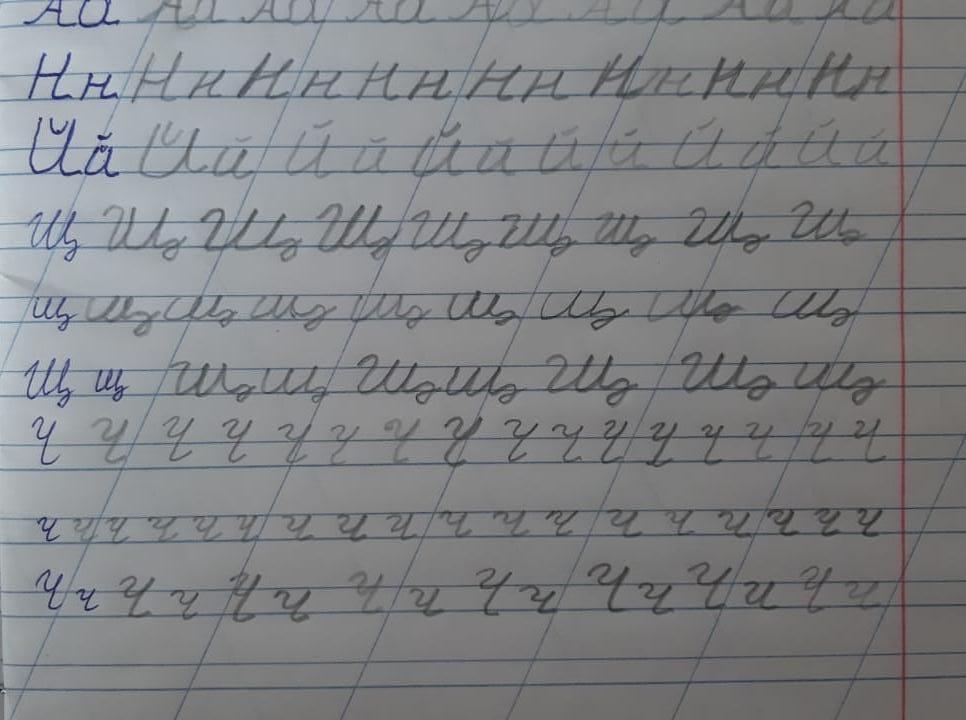 Аа Аа Аа Аа Аа Аа Аа Аа
Нн Нн Нн Нн Нн Нн Нн Нн
Йй Йй Йй Йй Йй Йй Йй
Щ Щ Щ Щ Щ Щ Щ Щ Щ
щ щ щ щ щ щ щ щ щ
Щ щ Щ щ Щ щ Щ Щ щ
Ч Ч Ч Ч Ч Ч Ч Ч Ч Ч Ч Ч Ч Ч Ч Ч
ч ч ч ч ч ч ч ч ч ч ч ч ч ч ч ч ч ч
Чч Чч Чч Чч Чч Чч Чч Чч